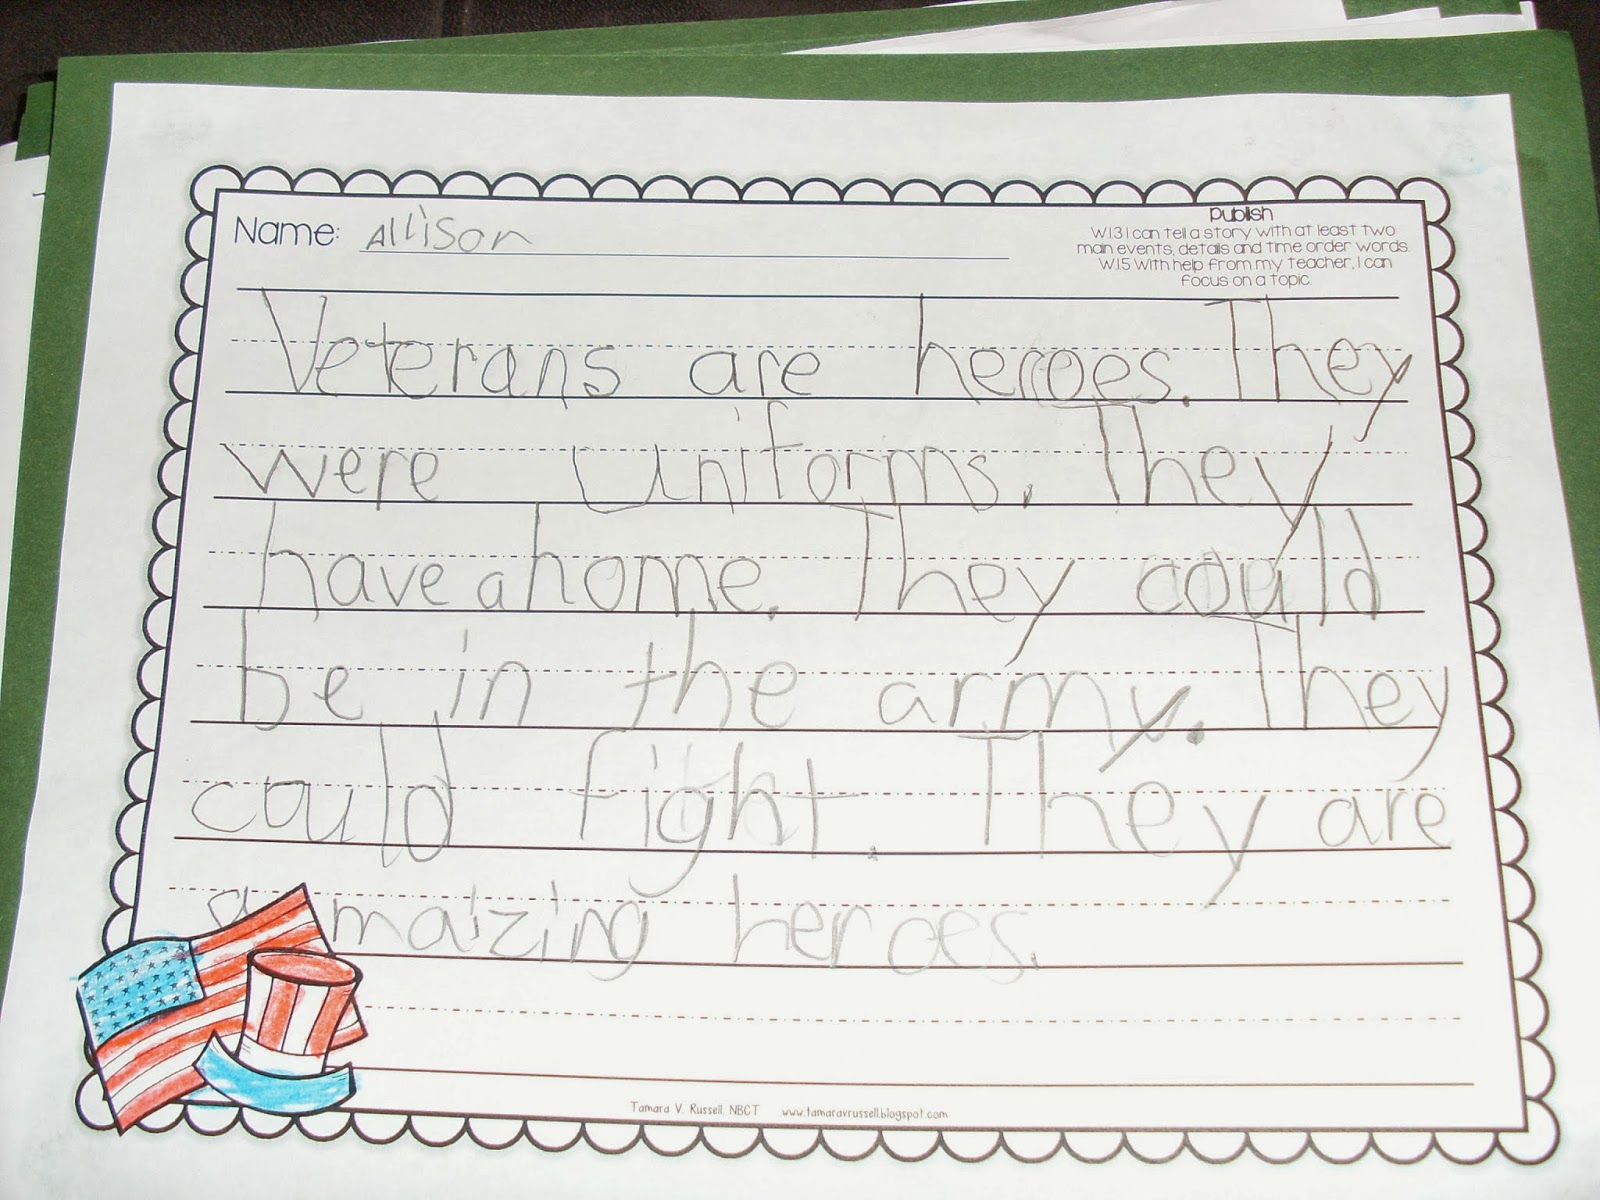 Name: Allison
Publish
W.1.3 I can tell a story with at least two
main events, details and time order words.
W.1.5 With help from my teacher, I can
focus on a topic.
Veterans are heroes. They
were uniforms. They
have a home. They could
be in the army. They
could fight. They are
amaizing heroes.
Tamara V. Russell, NBCT www.tamaravrussell.blogspot.com